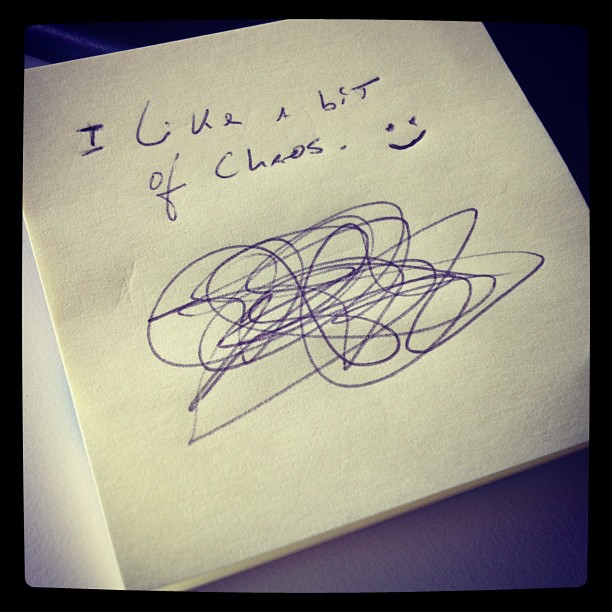 I Like a bit
of Chaos. :)